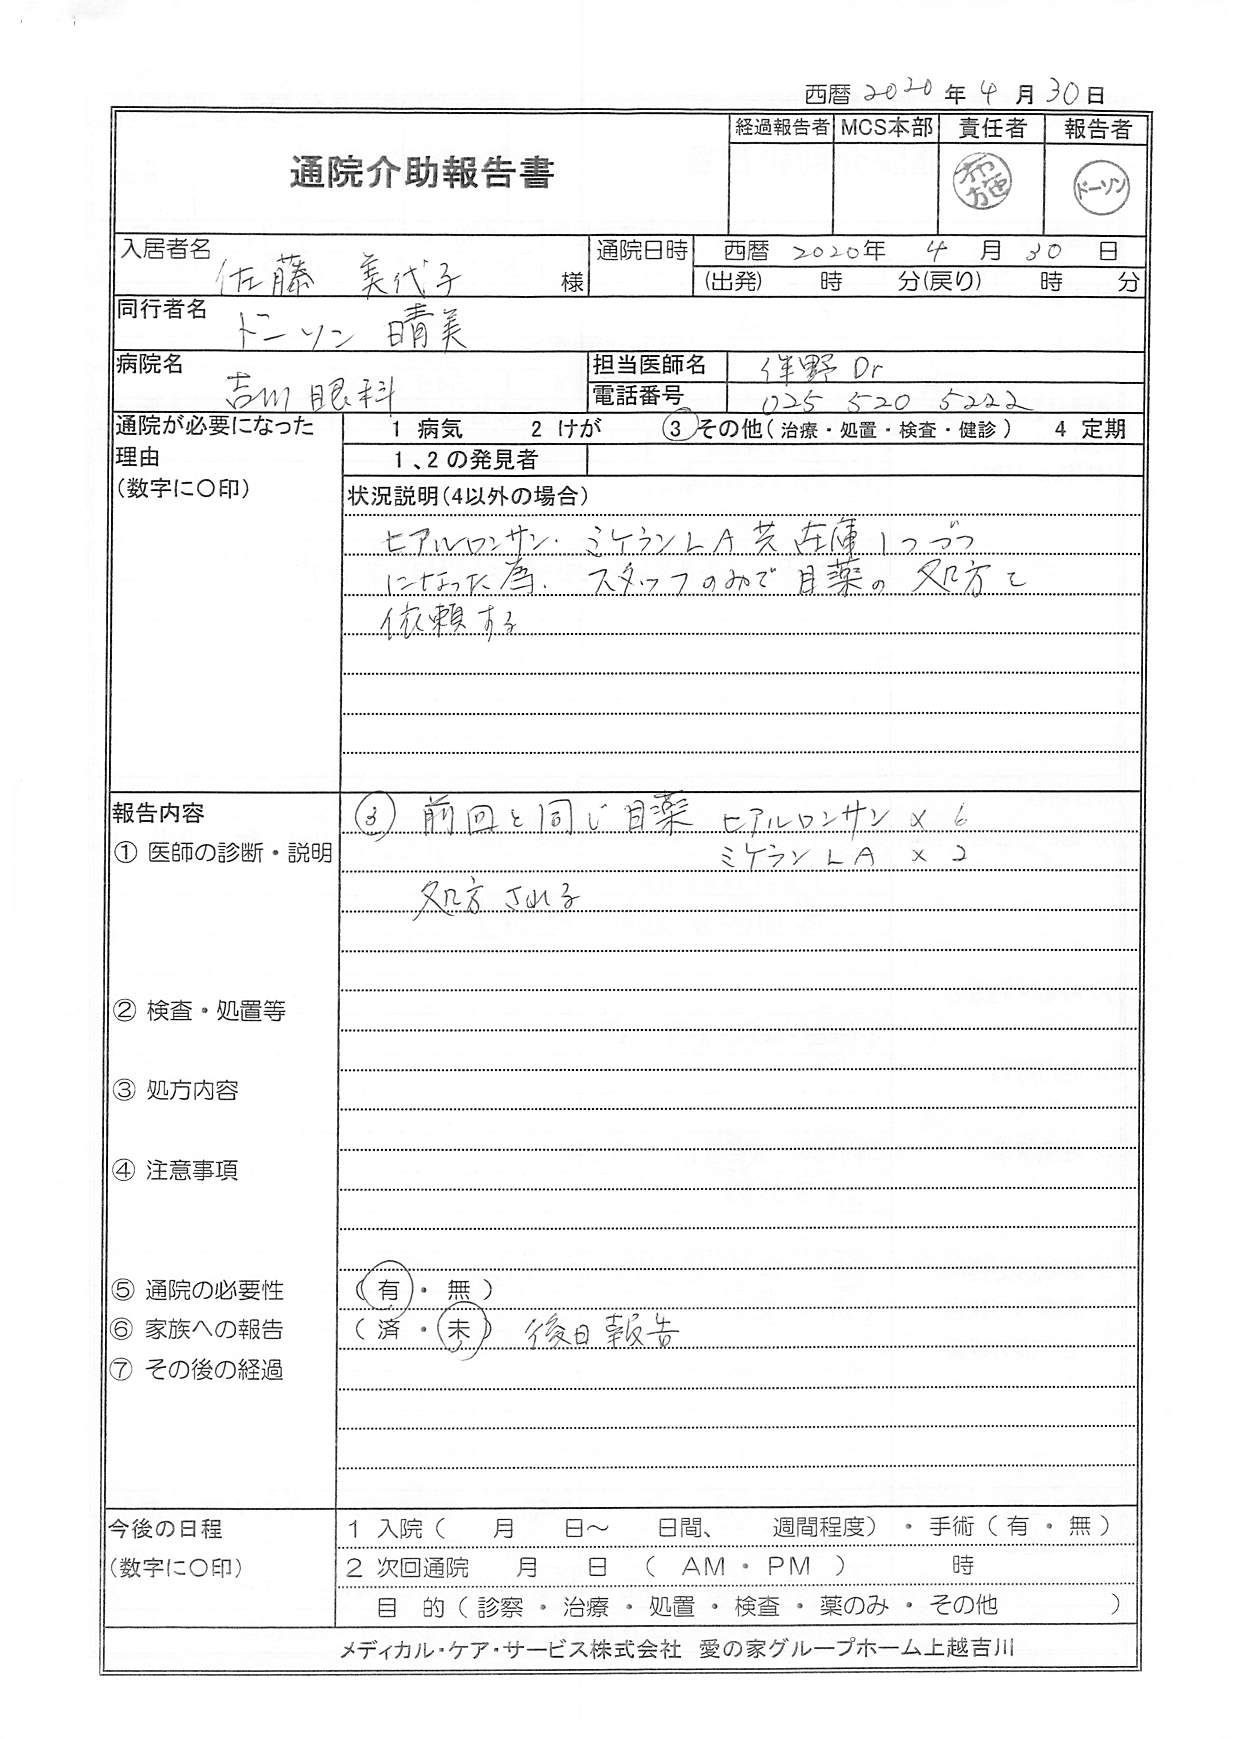 西暦 2020 年 4 月 30 日
通院介助報告書
経過報告者 MCS本部 責任者 報告者
布施 ドーソン
入居者名 佐藤 美代子 様
通院日時 西暦 2020年 4 月 30 日
(出発) 時 分(戻り) 時 分
同行者名 ドーソン 晴美
病院名 吉川眼科
担当医師名 伴野 Dr
電話番号 025 520 5222
通院が必要になった理由
(数字に〇印)
1 病気 2 けが ③ その他(治療・処置・検査・健診) 4 定期
1、2の発見者
状況説明(4以外の場合)
ヒアルロンサン・ミケランLA共 在庫1つづつ
になった為、スタッフのみで目薬の処方を
依頼する
報告内容
③ 前回と同じ目薬 ヒアルロンサン × 6
① 医師の診断・説明
ミケランLA × 2
処方される
② 検査・処置等
③ 処方内容
④ 注意事項
⑤ 通院の必要性 (有・無)
⑥ 家族への報告 (済・未) 後日報告
⑦ その後の経過
今後の日程
(数字に〇印)
1 入院( 月 日~ 日間、 週間程度)・手術(有・無)
2 次回通院 月 日 ( AM・PM ) 時
目 的(診察・治療・処置・検査・薬のみ・その他 )
メディカル・ケア・サービス株式会社 愛の家グループホーム上越吉川